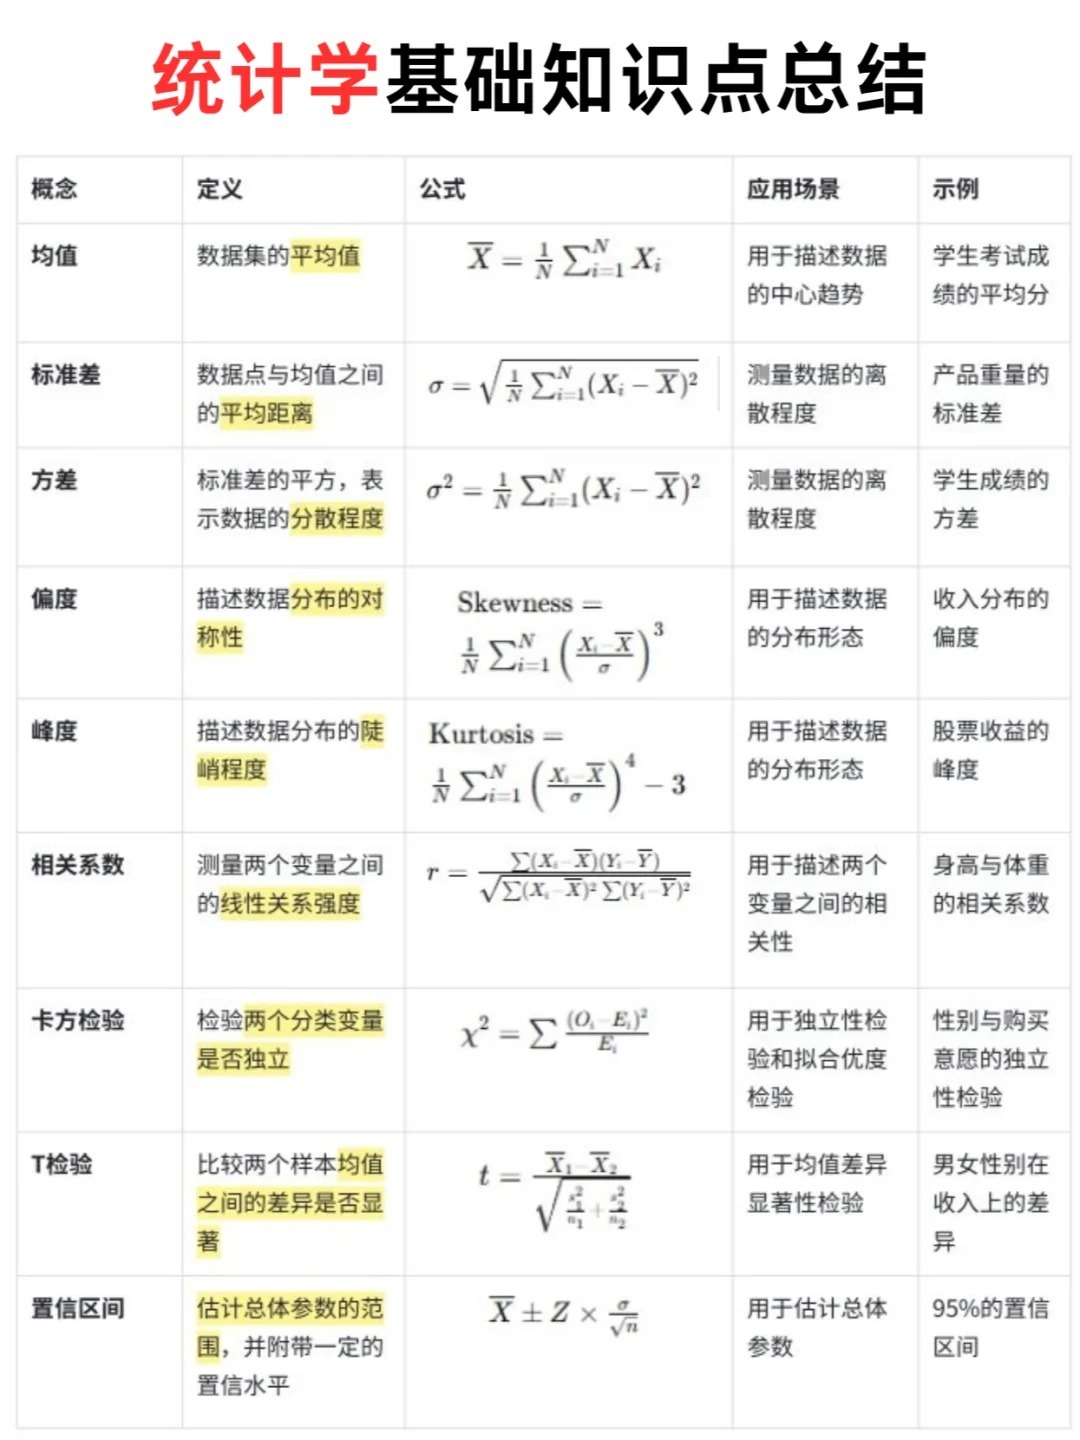 统计学基础知识点总结
概念 定义 公式 应用场景 示例
均值 数据集的平均值 $\overline{X} = \frac{1}{N} \sum_{i=1}^{N} X_i$ 用于描述数据 学生考试成
的中心趋势 绩的平均分
标准差 数据点与均值之间 $\sigma = \sqrt{\frac{1}{N} \sum_{i=1}^{N} (X_i - \overline{X})^2}$ 测量数据的离 产品重量的
的平均距离 散程度 标准差
方差 标准差的平方，表 $\sigma^2 = \frac{1}{N} \sum_{i=1}^{N} (X_i - \overline{X})^2$ 测量数据的离 学生成绩的
示数据的分散程度 散程度 方差
偏度 描述数据分布的对 Skewness = 用于描述数据 收入分布的
称性 $\frac{1}{N} \sum_{i=1}^{N} \left(\frac{X_i - \overline{X}}{\sigma}\right)^3$ 的分布形态 偏度
峰度 描述数据分布的陡 Kurtosis = 用于描述数据 股票收益的
峭程度 $\frac{1}{N} \sum_{i=1}^{N} \left(\frac{X_i - \overline{X}}{\sigma}\right)^4 - 3$ 的分布形态 峰度
相关系数 测量两个变量之间 $r = \frac{\sum (X_i - \overline{X})(Y_i - \overline{Y})}{\sqrt{\sum (X_i - \overline{X})^2 \sum (Y_i - \overline{Y})^2}}$ 用于描述两个 身高与体重
的线性关系强度 变量之间的相 的相关系数
关性
卡方检验 检验两个分类变量 $\chi^2 = \sum \frac{(O_i - E_i)^2}{E_i}$ 用于独立性检 性别与购买
是否独立 验和拟合优度 意愿的独立
检验 性检验
T检验 比较两个样本均值 $t = \frac{\overline{X}_1 - \overline{X}_2}{\sqrt{\frac{s_1^2}{n_1} + \frac{s_2^2}{n_2}}}$ 用于均值差异 男女性别在
之间的差异是否显 显著性检验 收入上的差
著 异
置信区间 估计总体参数的范 $\overline{X} \pm Z \times \frac{\sigma}{\sqrt{n}}$ 用于估计总体 95%的置信
围，并附带一定的 参数 区间
置信水平